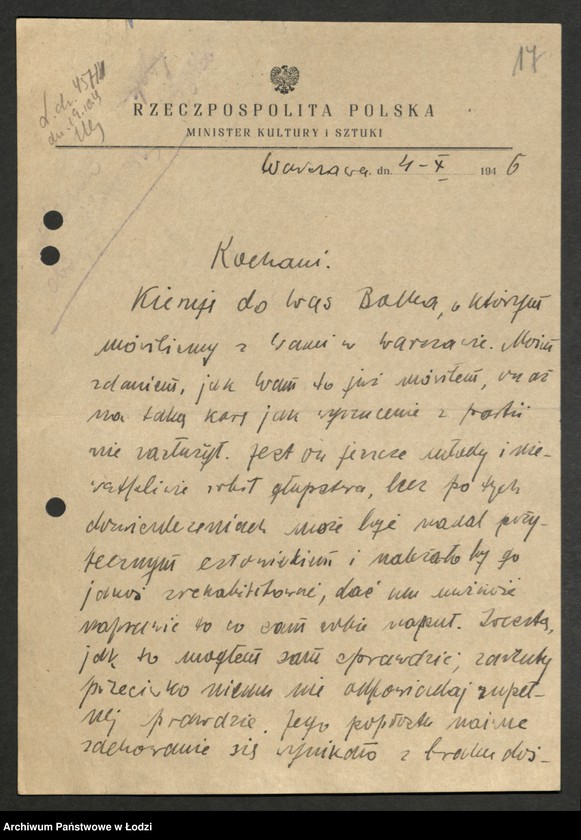 17
L. dz. 457/
RZECZPOSPOLITA POLSKA
MINISTER KULTURY i SZTUKI
Warszawa, dn. 4-X 1946
Kochani.
Kieruję do Was Bolka, o którym
mówiliśmy z Wami w Warszawie. Moim
zdaniem, jak Wam to już mówiłem, on aż
na taką karę jak wyrzucenie z partii
nie zasłużył. Jest on jeszcze młody i nie-
wątpliwie robił głupstwa, lecz po tych
doświadczeniach może być nadal poży-
tecznym człowiekiem i należało by go
jakoś zrehabilitować, dać mu możność
naprawić to co sam sobie napsuł. Zresztą,
jak to mogłem sam sprawdzić, zarzuty
przeciwko niemu nie odpowiadają zupeł-
nej prawdzie. Jego
zachowanie się wynikało z braku doś-
Archiwum Państwowe w Łodzi